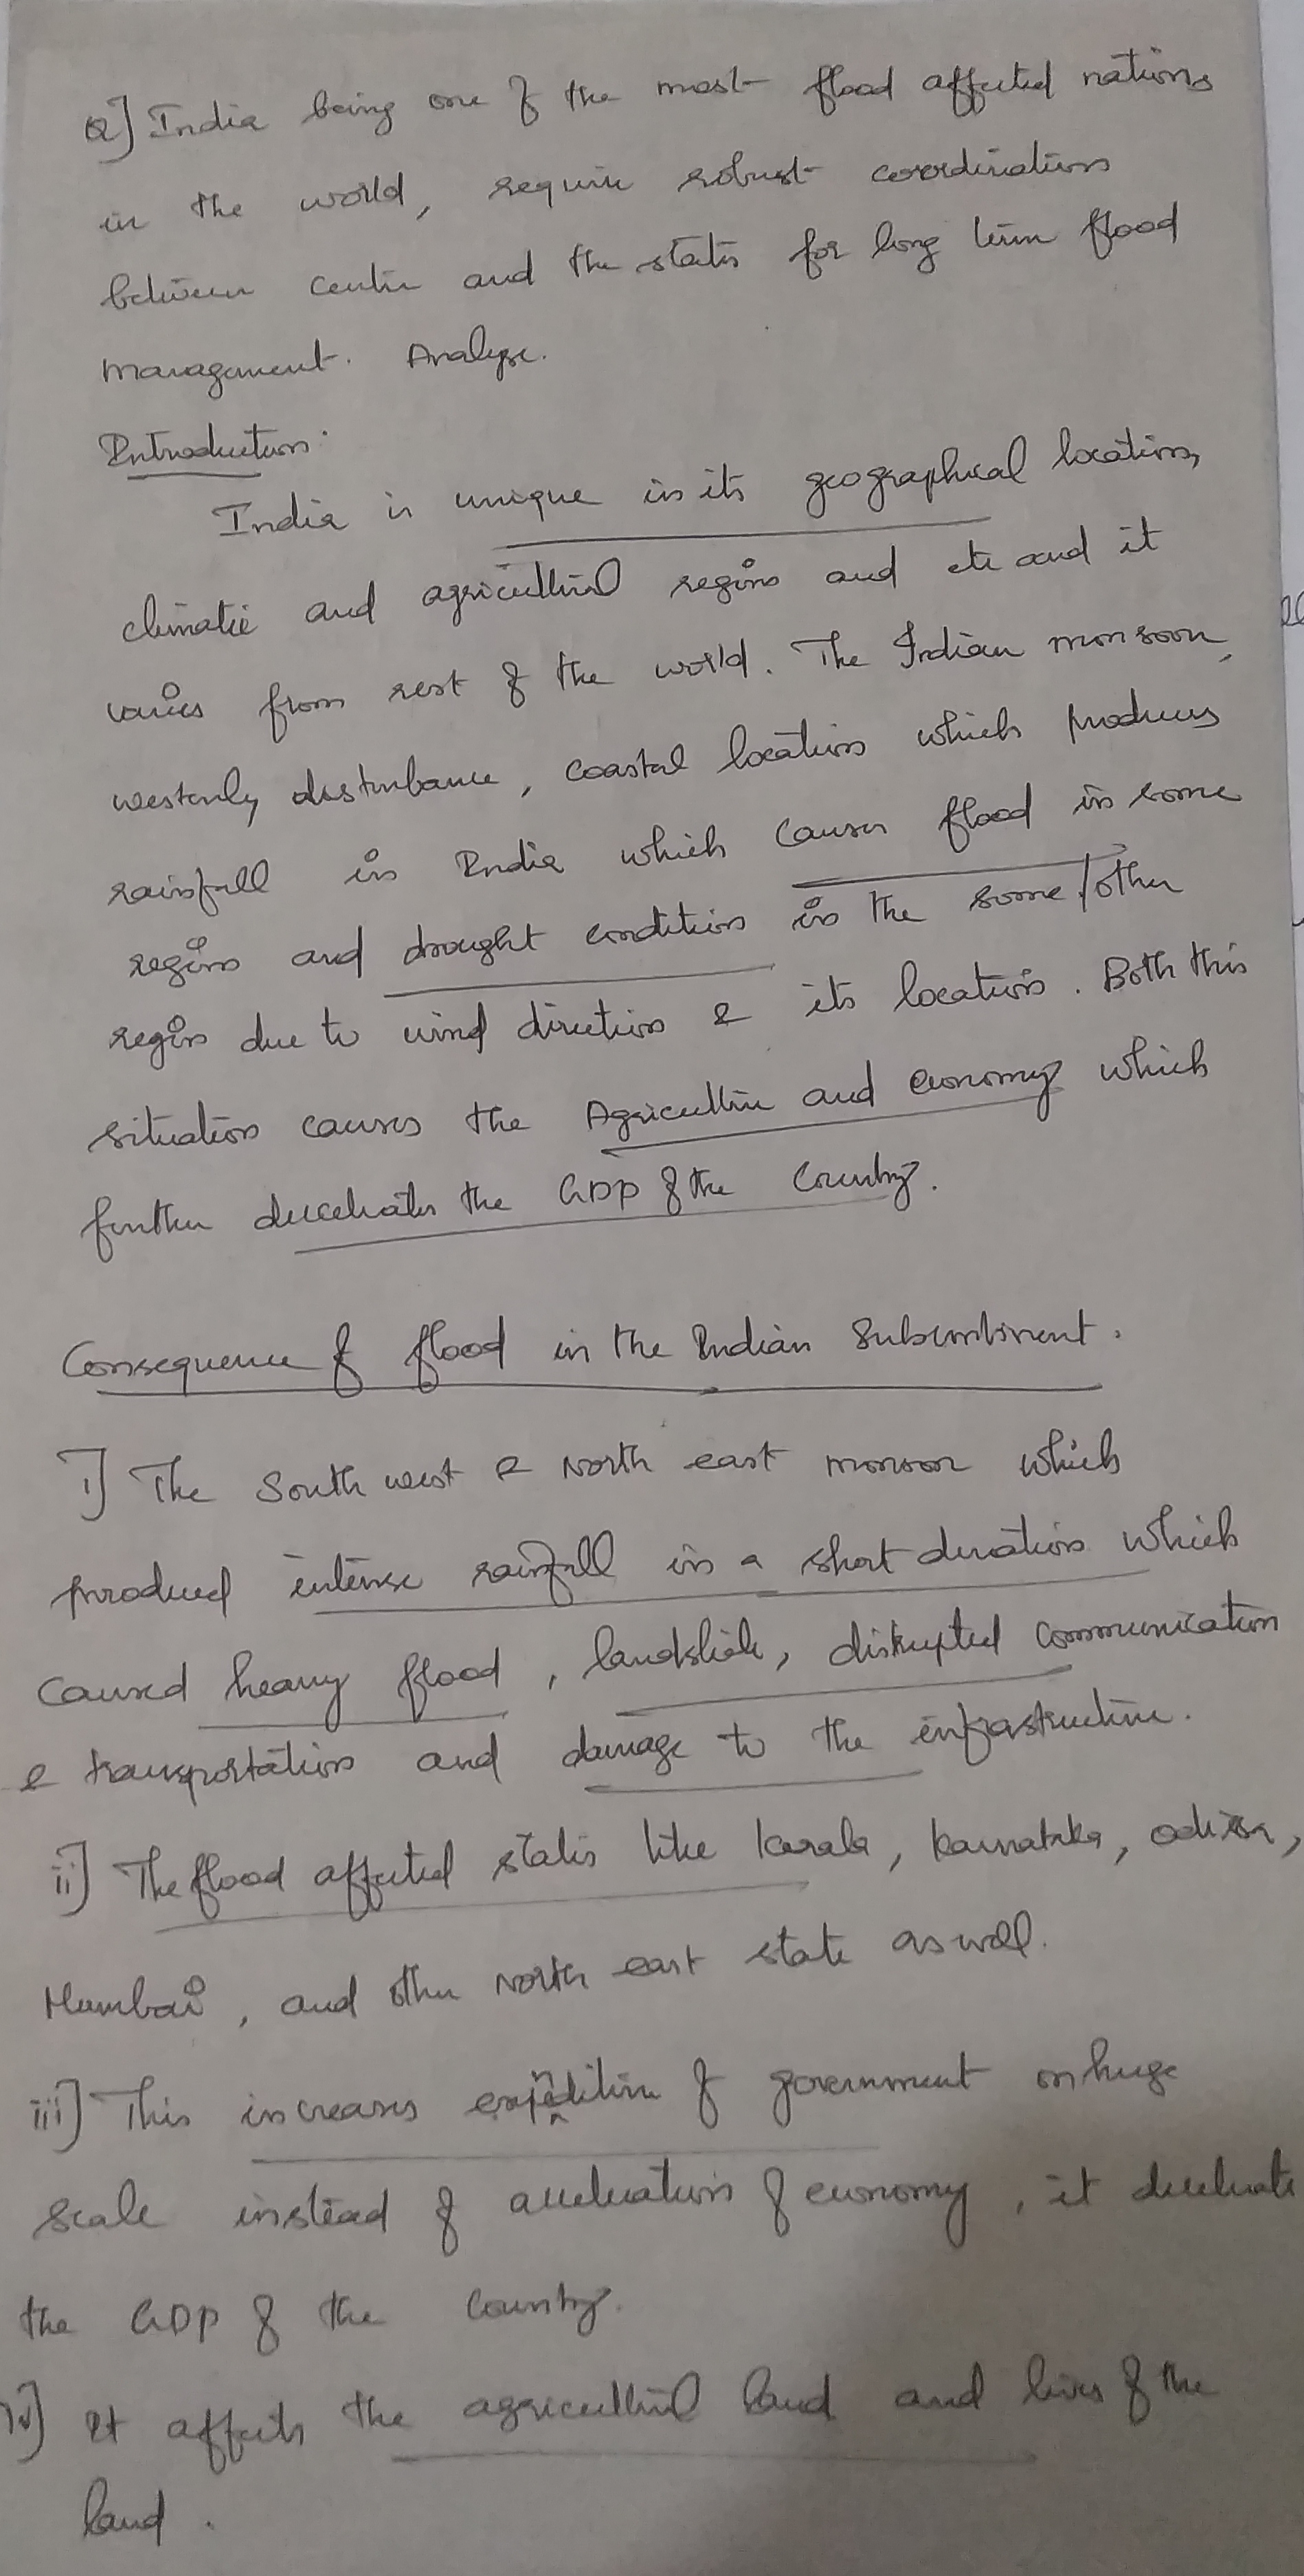 Q] India being one of the most flood affected nations
in the world, require robust coordination
between centre and the states for long term flood
management. Analyse.
Introduction.
India is unique in its geographical location,
climatic and agricultural region and etc and it
varies from rest of the world. The Indian monsoon,
westerly disturbance, coastal location which produces
rainfall in India which causes flood in some
region and drought condition in the some/other
region due to wind direction & its location. Both this
situation causes the Agriculture and economy which
further decelerates the GDP of the Country.
Consequence of flood in the Indian Subcontinent.
i] The South west & North east monsoon which
produced intense rainfall in a short duration which
caused heavy flood, landslide, disrupted communication
& transportation and damage to the infrastructure.
ii] The flood affected states like Kerala, Karnataka, odissa,
Mumbai, and other North east state as well.
iii] This increases of government on huge
scale instead of acceleration of economy, it decelerate
the GDP of the Country.
iv] It affects the agricultural land and lives of the
land.